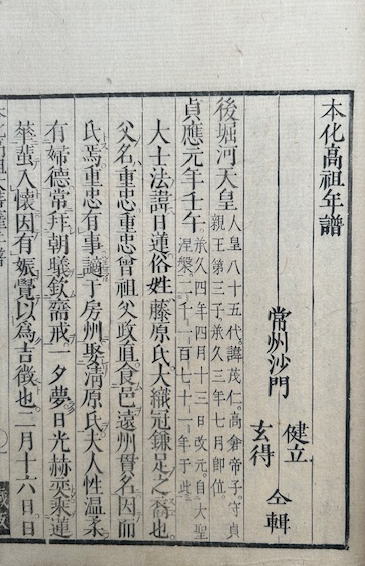 本化高祖年譜
常州沙門
健立
玄得
仝輯
後堀河天皇
人皇八十五代。諱茂仁。高倉帝子。守貞
親王第三子。承久三年七月即位。
貞應元年壬午。
承久四年四月十三日改元。自大聖
涅槃。二千一百七十一年于此。
大士法諱日蓮俗姓藤原氏大織冠鎌足之裔也。
父名重忠重忠曾祖父政直食邑遠州貫名因而
氏焉重忠有事謫于房州娶淸原氏大人性温柔
有婦德常拜朝曦欽齋戒一夕夢日光赫奕乘蓮
華入懷因有娠覺以爲吉徵也二月十六日日